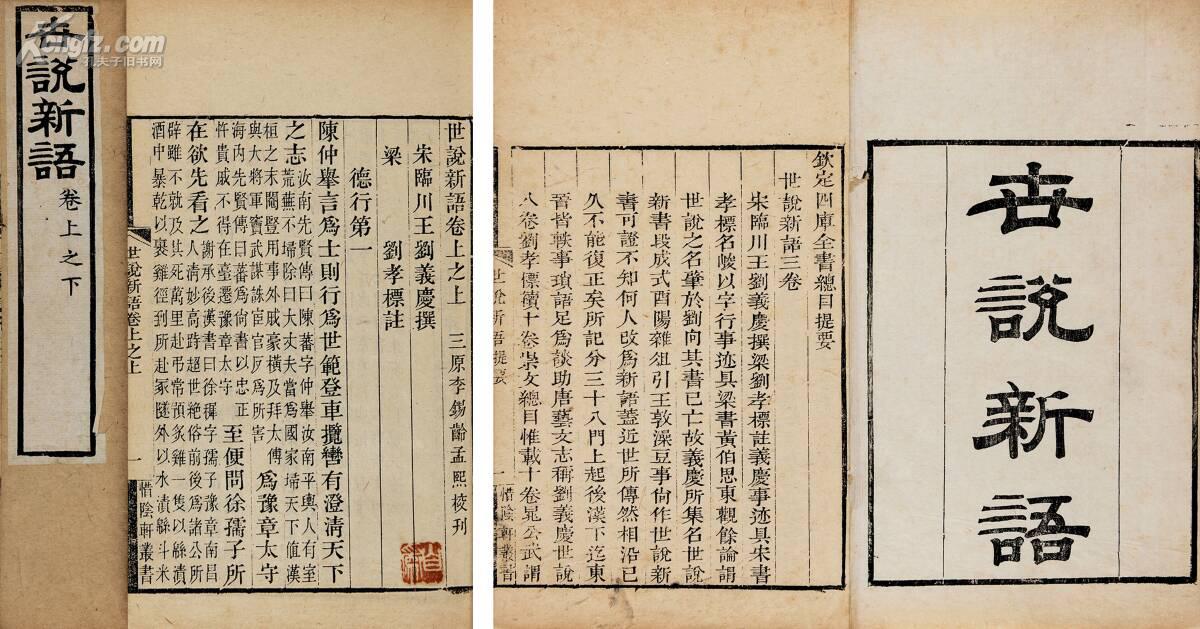 世說新語 卷上之下
世說新語卷上之上 三原李錫齡孟熙校刊
宋臨川王劉義慶撰
梁 劉孝標註
德行第一
陳仲舉言爲士則行爲世範登車攬轡有澄清天下
之志 汝南先賢傳曰陳蕃字仲舉汝南平輿人有室
荒蕪不埽除曰大丈夫當爲國家埽天下值漢
桓之末閹豎用事外戚豪橫及拜太傅
與大將軍竇武謀誅宦官反爲所害 爲豫章太守
海內先賢傳曰蕃爲尚書以忠正
忤貴戚不得在臺遷豫章太守 至便問徐孺子所
在欲先看之 謝承後漢書曰徐穉字孺子豫章南昌
人清妙高跱超世絕俗前後爲諸公所
辟雖不就及其死萬里赴弔常預炙雞一隻以綿漬
酒中暴乾以裹雞徑到所赴冢隧外以水漬綿斗米
世說新語卷上之上 一 惜陰軒叢書
世說新語
欽定四庫全書總目提要
世說新語三卷
宋臨川王劉義慶撰梁劉孝標註義慶事迹具宋書
孝標名峻以字行事迹具梁書黃伯思東觀餘論謂
世說之名肇於劉向其書已亡故義慶所集名世說
新書段成式酉陽雜俎引王敦澡豆事尚作世說新
書可證不知何人改爲新語蓋近世所傳然相沿已
久不能復正矣所記分三十八門上起後漢下迄東
晉皆軼事瑣語足爲談助唐藝文志稱劉義慶世說
八卷劉孝標續十卷崇文總目惟載十卷晁公武謂
世說新語提要 一 惜陰軒叢書
孔夫子旧书网